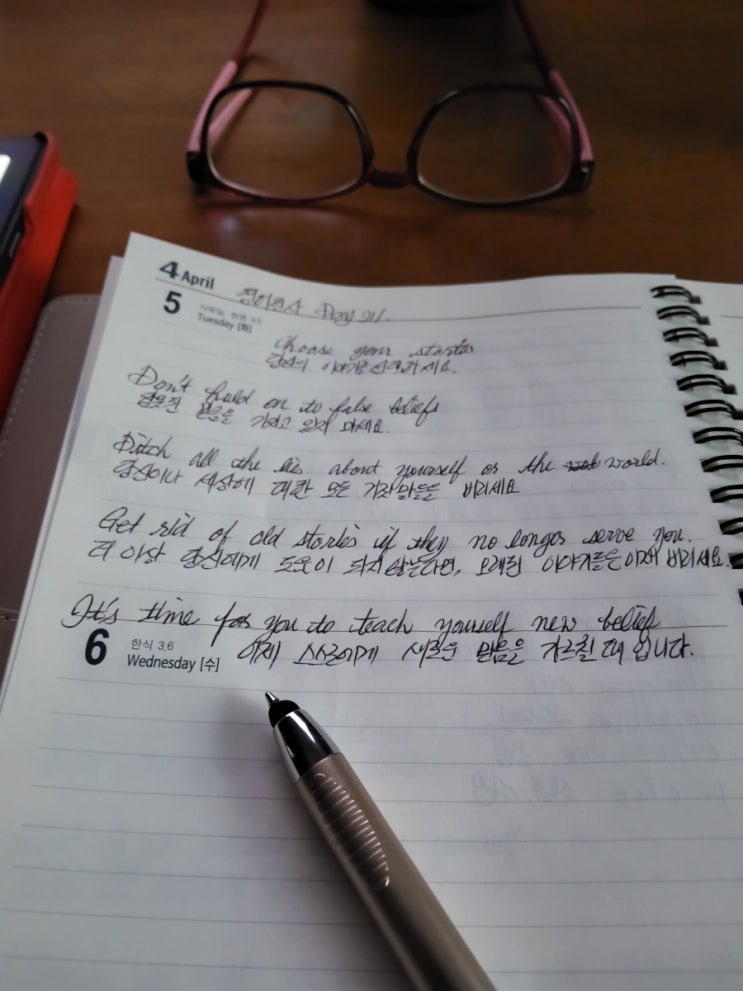 4 April
5 식목일, 청명 3.5
Tuesday [화]
Day 21.
Choose your stories
당신의 이야기를 선택하세요.
Don't hold on to false beliefs
잘못된 믿음을 가지고 있지 마세요.
Ditch all the lies about yourself or the world.
당신이나 세상에 대한 모든 거짓말들을 버리세요
Get rid of old stories if they no longer serve you.
더 이상 당신에게 도움이 되지 않는다면, 오래된 이야기들을 이제 버리세요.
It's time for you to teach yourself new belief
6 한식 3.6
Wednesday [수]
이제 스스로에게 새로운 믿음을 가르칠 때 입니다.